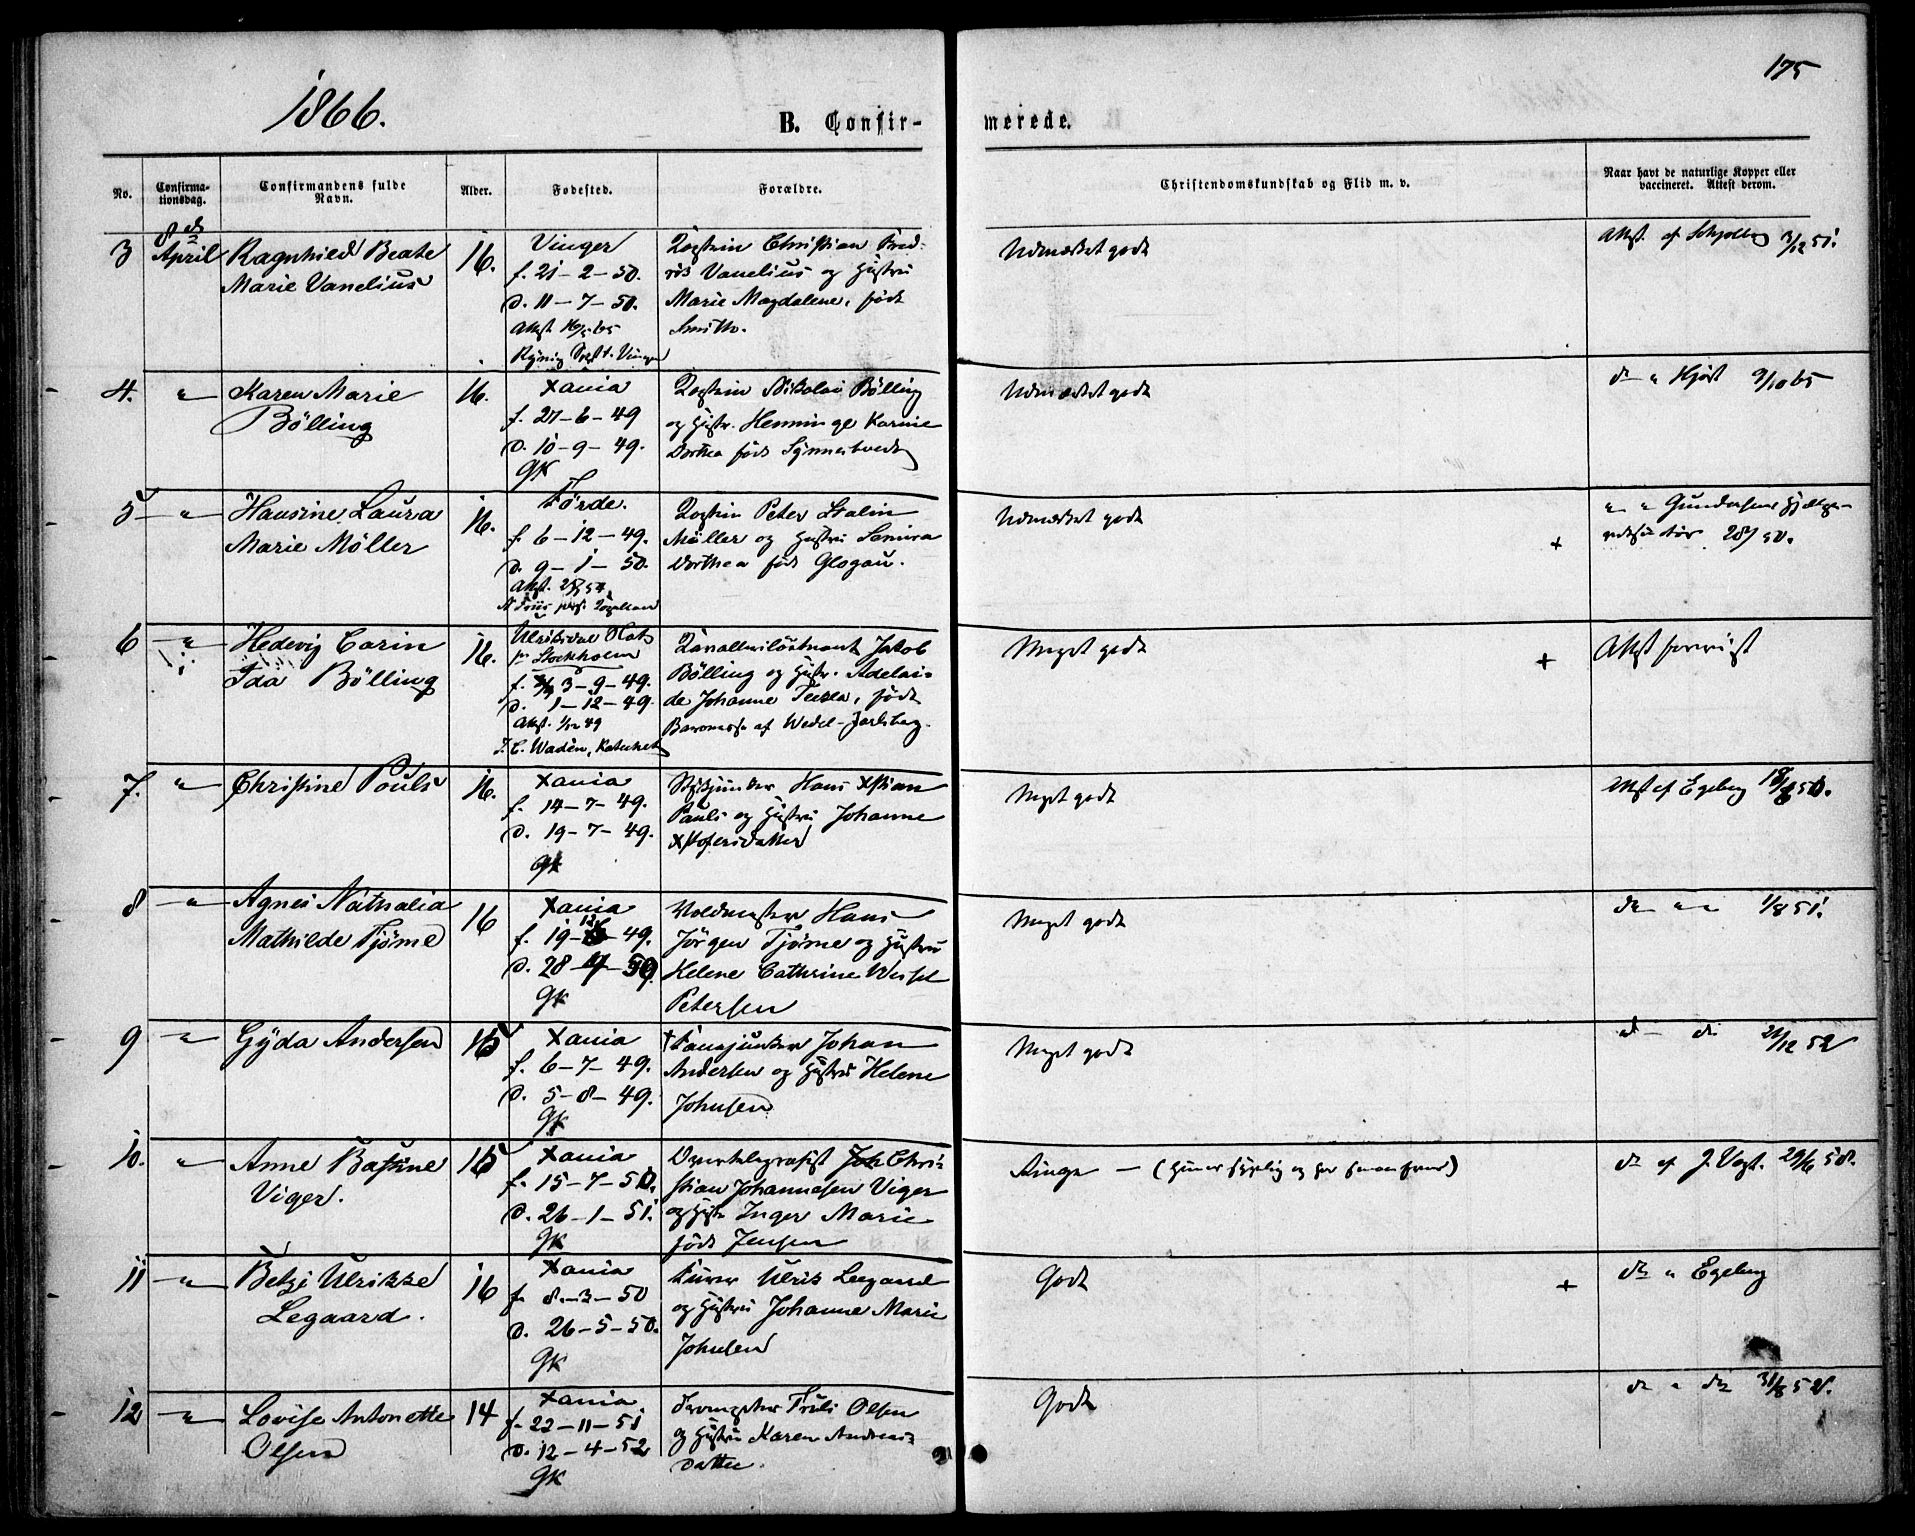 175
1866.
B. Confirmerede.
No.
Confirmationsdag.
Confirmandens fulde Navn.
Alder.
Fødested.
Forældre.
Christendomskundskab og Flid m. v.
Naar havt de naturlige Kopper eller vaccineret. Attest derom.
3
8de April
Ragnhild Beate
Marie Vanelius
16.
Vinger
f. 21-2-50.
d. 11-7-50.
Christian Fred-
rik Vanelius og Hustru
Marie Magdalene, født
Smith.
Udmærket godt
Attst. af 3/12 51.
4.
"
Karen Marie
Bölling
16.
Xania
f. 27-6-49
d. 10-9-49.
GK
Nikolai Bölling
og Hustr. Henninge Karine
Dorthea født
Udmærket godt
do " Hjort 9/10 65
5
"
Hansine Laura
Marie Möller
16.
Førde.
f. 6-12-49.
d. 9-1-50.
Peter Stalin
Möller og Hustru
Dorthea født Glogau.
Udmærket godt
+
" " Gundersen
6
"
Hedevig Carin
Ida Bölling
16.
Ulriksdal Slot
pr Stockholm
f. 3-9-49.
d. 1-12-49.
Attst. 1/12 49
J. C. Wadén, Katechet
Jakob
Bölling og Hustr. Adelai-
de Johanne Tecla, født
Baronesse af Wedel-Jarlsberg.
Meget godt
+
Attst forevist
7.
"
Christine Pouls
16.
Xania
f. 14-7-49.
d. 19-7-49.
GK
Hans Xstian
Pauls og Hustru Johanne
Xstofersdatter
Meget godt
Attst af Egeberg
8
"
Agnes Nathalia
Mathilde Tjöme
16
Xania
f. 19-12-49.
d. 28-4-50.
GK
Hans
Jörgen Tjöme og Hustru
Helene Cathrine Wessel
Petersen
Meget godt
do " " 1/8 51.
9
"
Gyda Andersen
16
Xania
f. 6-7-49.
d. 5-8-49.
GK
Johan
Andersen og Hustru Helene
Johnsen
Meget godt
do do 21/12 52
10.
"
Anne Bastine
Viger.
15
Xania
f. 15-7-50.
d. 26-1-51.
GK
Overtelegrafist Chri-
stian Johannesen Viger
og Hustr. Inger Marie
født Jensen
Ringe
do af J. Vogt.
11
"
Betzi Ulrikke
Legaard.
16
Xania
f. 8-3-50
d. 26-5-50.
GK
Ulrik Legaard
og Hustru Johanne Marie
Johnsen
Godt
+
do " Egeberg
12
"
Lovise Antonette
Olsen
14
Xania
f. 22-11-51
d. 12-4-52
GK
Truls Olsen
og Hustru Karen Anders-
datter.
Godt
do " do